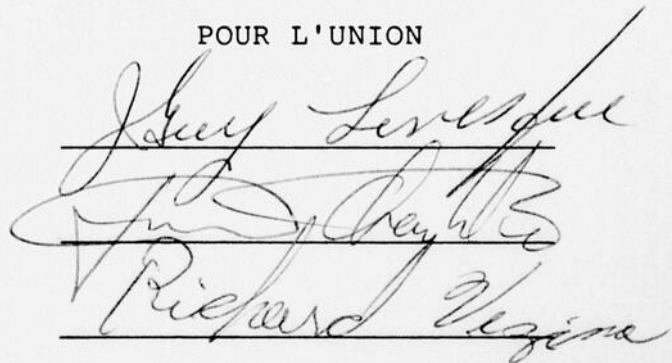 POUR L'UNION
J Guy Levesque
Richard Vezina